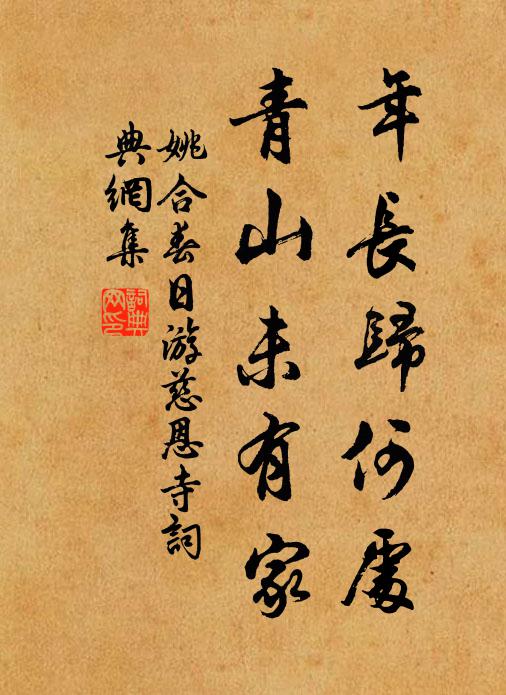 年長歸何處
青山未有家
姚合春日游慈恩寺詞
典網集
詞典
网印